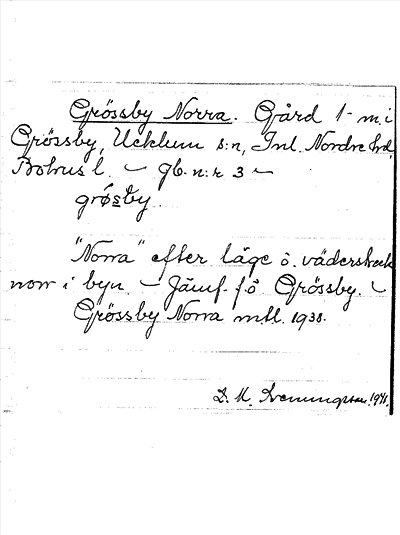 Grössby Norra. Gård 1 m. i
Grössby, Ucklum s:n, Inl. Nordre hd,
Bohus l. – Gb. n:r 3 –
grǿsby.
"Norra" efter läge o. väderstreck
norr i byn. – Jämf. f.ö. Grössby. –
Grössby Norra mtl. 1938.
1941.